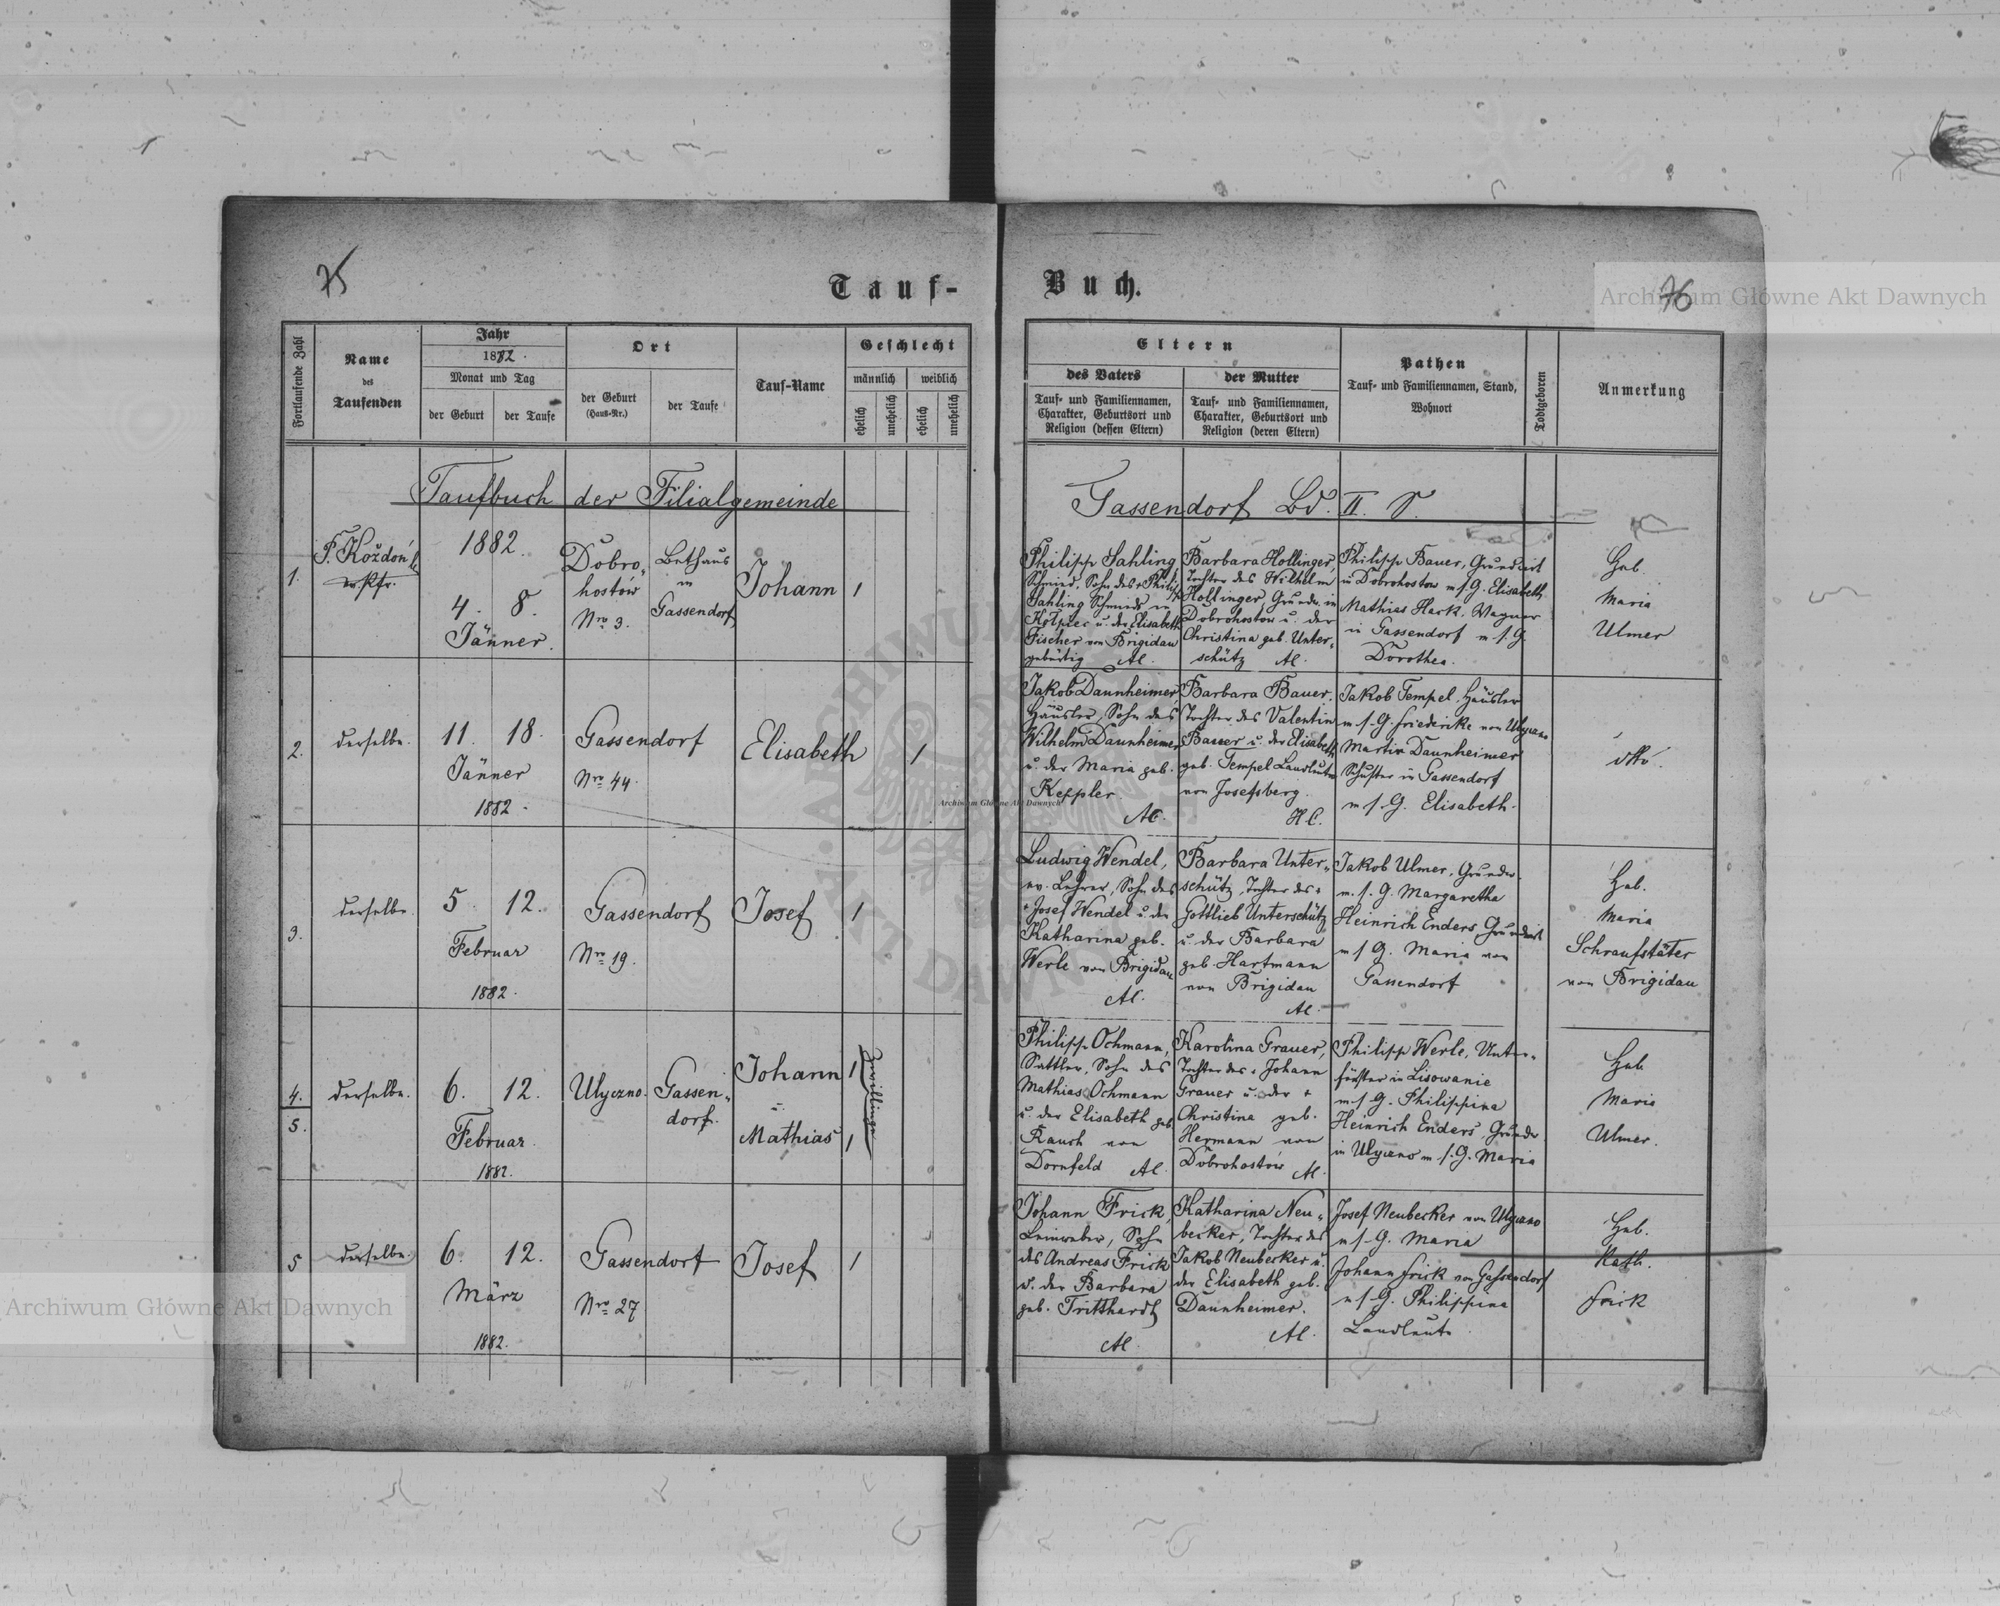 75
76
Tauf-Buch.
Archiwum Główne Akt Dawnych
Fortlaufende Zahl
Name
des
Taufenden
Jahr
1882.
Monat und Tag
der Geburt
der Taufe
Ort
der Geburt
(Haus-Nr.)
der Taufe
Tauf-Name
Geschlecht
männlich
weiblich
ehelich
unehelich
ehelich
unehelich
Eltern
des Vaters
Tauf- und Familiennamen,
Charakter, Geburtsort und
Religion (dessen Eltern)
der Mutter
Tauf- und Familiennamen,
Charakter, Geburtsort und
Religion (deren Eltern)
Pathen
Tauf- und Familiennamen, Stand,
Wohnort
Todtgeboren
Anmerkung
Taufbuch der Filialgemeinde
Gassendorf Bd. II.
1.
F. Koždoń
1882.
4. 8.
Jänner.
Dobro-
hostów
Nro 3.
Bethaus
in
Gassendorf
Johann
1
Philipp Sahling,
Schmied, Sohn des + Philipp
Sahling Schmieds in
Kołpiec u. der Elisabeth
Fischer von Brigidau
gebürtig AC.
Barbara Hollinger,
Tochter des Wilhelm
Hollinger Grundw. in
Dobrohostow u. der
Christina geb. Unter-
schütz AC.
Philipp Bauer, Grundwirt
in Dobrohostow m. s. G. Elisabeth
Mathias Hack, Wagner
in Gassendorf m. s. G.
Dorothea.
Heb.
Maria
Ulmer
2.
derselbe.
11. 18.
Jänner
1882.
Gassendorf
Nro 44.
Elisabeth
1
Jakob Daunheimer,
Häusler, Sohn des
Wilhelm Daunheimer
u. der Maria geb.
Keppler.
AC.
Barbara Bauer,
Tochter des Valentin
Bauer u. der Elisabeth
geb. Tempel Landleute
von Josefsberg.
HC.
Jakob Tempel, Häusler
m. s. G. Friederike von Ulyczno
Martin Daunheimer
Schuster in Gassendorf
m. s. G. Elisabeth.
dtto.
3.
derselbe
5. 12.
Februar
1882.
Gassendorf
Nro 19.
Josef
1
Ludwig Wendel,
ev. Lehrer, Sohn des
+ Josef Wendel u. der
Katharina geb.
Werle von Brigidau
AC.
Barbara Unter-
schütz, Tochter des +
Gottlieb Unterschütz
u. der Barbara
geb. Hartmann
von Brigidau
AC.
Jakob Ulmer, Grundw.
m. s. G. Margaretha
Heinrich Enders, Grundwirt
m. s. G. Maria von
Gassendorf
Heb.
Maria
Schraufstäter
von Brigidau
4.
5.
derselbe.
6. 12.
Februar.
1882.
Ulyczno.
Gassen-
dorf.
Johann 1
u.
Mathias 1
Zwillinge
Philipp Ochmann,
Sattler, Sohn des
Mathias Ochmann
u. der Elisabeth geb.
Rauch von
Dornfeld AC.
Karolina Grauer,
Tochter des + Johann
Grauer u. der +
Christina geb.
Hermann von
Dobrohostów AC.
Philipp Werle, Unter-
förster in Lisowanie
m. s. G. Philippina
Heinrich Enders, Grundw.
in Ulyczno m. s. G. Maria
Heb.
Maria
Ulmer.
5
derselbe.
6. 12.
März
1882.
Gassendorf
Nro 27.
Josef
1
Johann Frick,
Leinweber, Sohn
des Andreas Frick
u. der Barbara
geb. Tritthardt
AC.
Katharina Neu-
becker, Tochter des
Jakob Neubecker u.
der Elisabeth geb.
Daunheimer.
AC.
Josef Neubecker von Ulyczno
m. s. G. Maria
Johann Frick von Gassendorf
m. s. G. Philippina
Landleute.
Heb.
Kath.
Frick
Archiwum Główne Akt Dawnych
Archiwum Główne Akt Dawnych